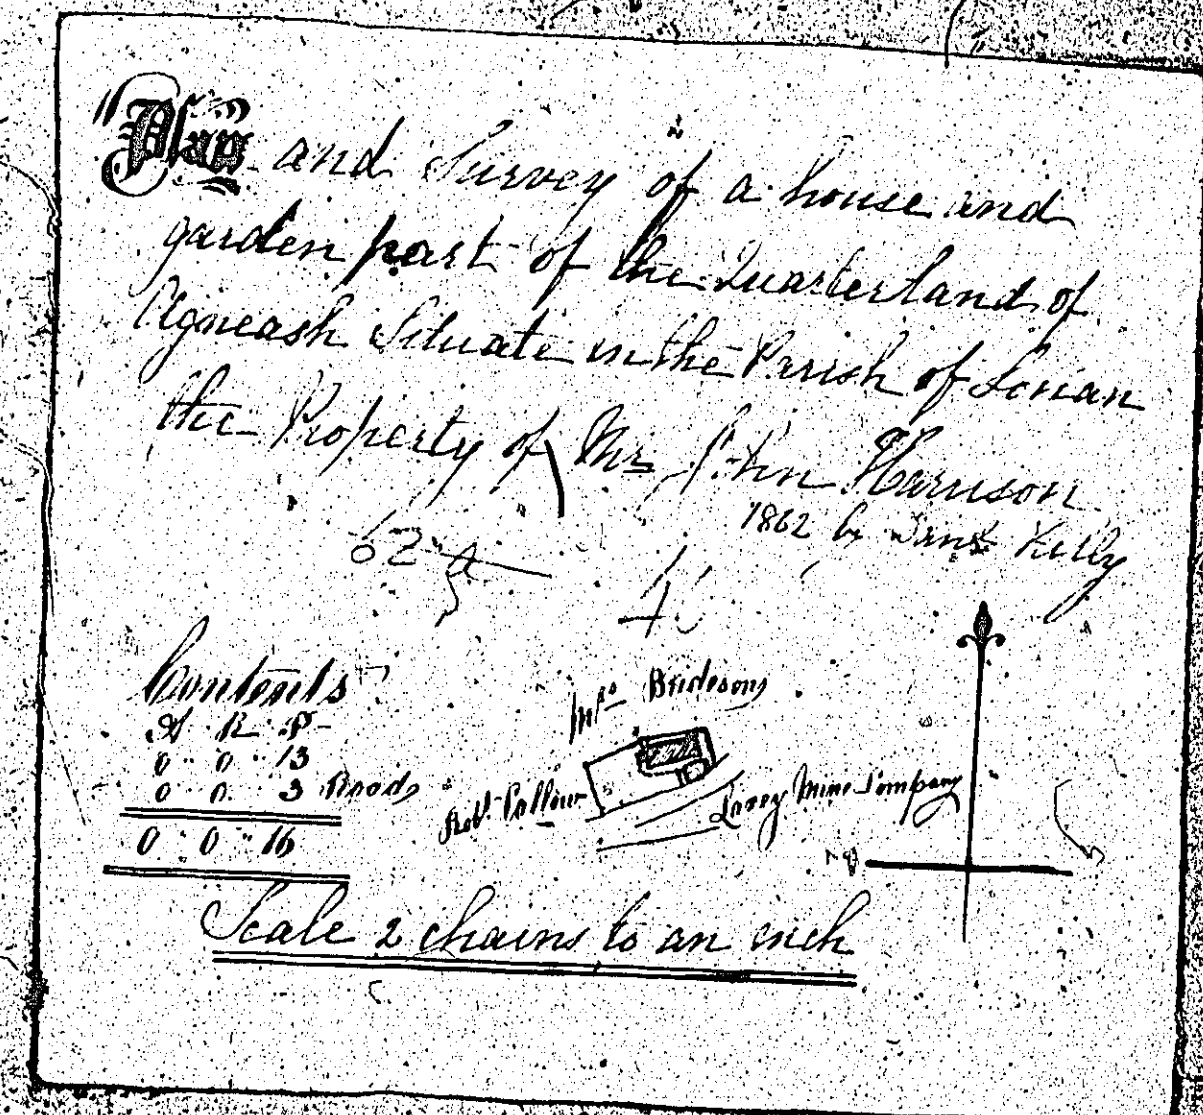 Plan and Survey of a house and
garden part of the Quarterland of
Agneash Situate in the Parish of Lonan
the Property of Mr John Harrison
1862 by Kelly
62
Contents
A R P
0 " 0 " 13
0 0 3 Road
0 " 0 " 16
Mrs Bridsons
Robt Callow
Laxey Mine Company
Scale 2 chains to an inch